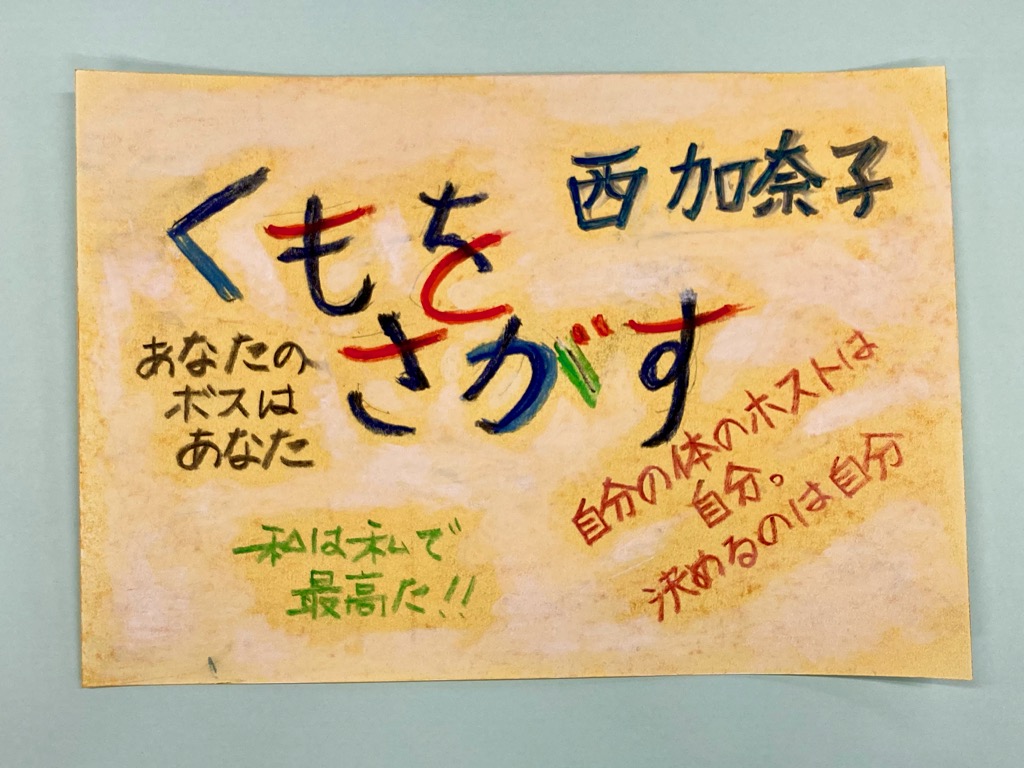 西加奈子
くもを
さがす
あなたの
ボスは
あなた
自分の体のホストは
自分。
決めるのは自分
私は私で
最高だ!!